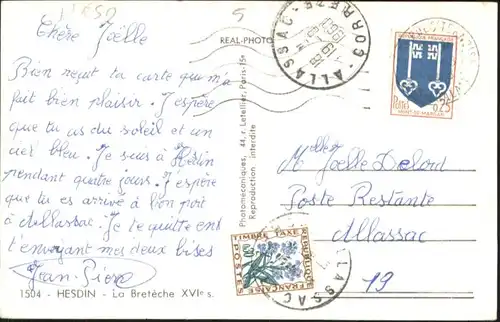 Chère Joëlle
Bien reçut ta carte que m'a
fait bien plaisir. J'espère
que tu as du soleil et un
ciel bleu. Je suis à Hesdin
pendant quatre jours. J'espère
que tu es arrivé à bon port
à Allassac. Je te quitte en
t'envoyant mes deux bises
Jean-Pierre
1504 - HESDIN - La Bretèche XVIe s.
REAL-PHOTO
Photomécaniques, 44, r. Letellier, Paris-15e
Reproduction interdite
ALLASSAC
CORREZE
REPUBLIQUE FRANÇAISE
POSTES
0,25
MONT-DE-MARSAN
Melle Joëlle Delord
Poste Restante
Allassac
19
TIMBRE TAXE
REPUBLIQUE
FRANÇAISE
POSTES
ALLASSAC